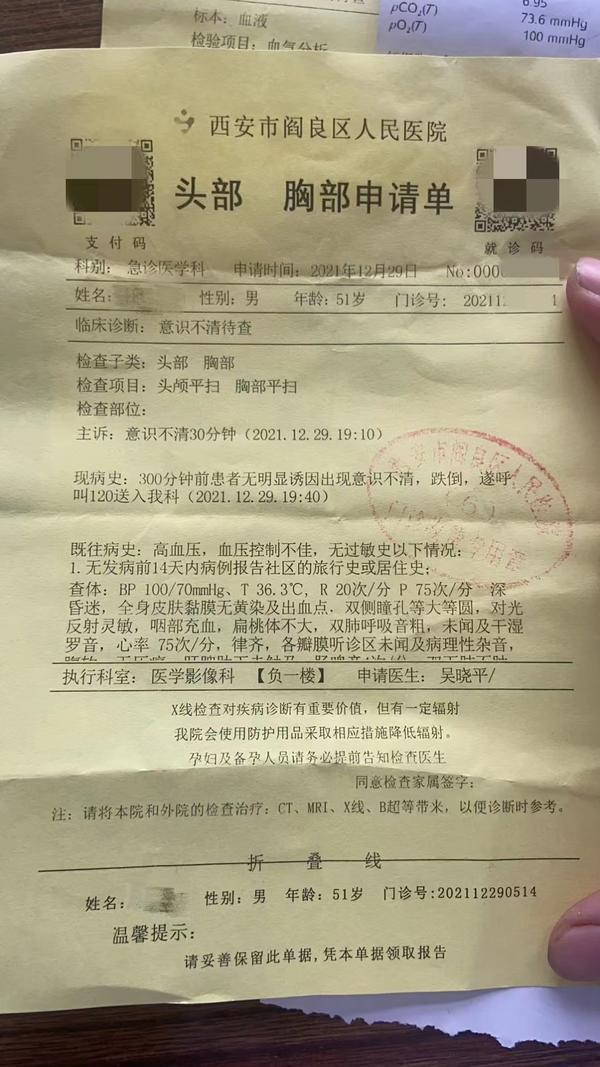 标本：血液
检验项目：血气分析
6.95
pCO₂(T) 73.6 mmHg
pO₂(T) 100 mmHg
西安市阎良区人民医院
头部 胸部申请单
支付码
就诊码
科别：急诊医学科 申请时间：2021年12月29日 No:000
姓名： 性别：男 年龄：51岁 门诊号：20211 1
临床诊断：意识不清待查
检查子类：头部 胸部
检查项目：头颅平扫 胸部平扫
检查部位：
主诉：意识不清30分钟（2021.12.29.19:10）
现病史：300分钟前患者无明显诱因出现意识不清，跌倒，遂呼
叫120送入我科（2021.12.29.19:40）
既往病史：高血压，血压控制不佳，无过敏史以下情况：
1.无发病前14天内病例报告社区的旅行史或居住史；
查体：BP 100/70mmHg、T 36.3℃, R 20次/分 P 75次/分 深
昏迷，全身皮肤黏膜无黄染及出血点，双侧瞳孔等大等圆，对光
反射灵敏，咽部充血，扁桃体不大，双肺呼吸音粗，未闻及干湿
罗音，心率 75次/分，律齐，各瓣膜听诊区未闻及病理性杂音，
执行科室：医学影像科 【负一楼】 申请医生：吴晓平/
X线检查对疾病诊断有重要价值，但有一定辐射
我院会使用防护用品采取相应措施降低辐射。
孕妇及备孕人员请务必提前告知检查医生
同意检查家属签字：
注：请将本院和外院的检查治疗：CT、MRI、X线、B超等带来，以便诊断时参考。
折 叠 线
姓名： 性别：男 年龄：51岁 门诊号:202112290514
温馨提示：
请妥善保留此单据,凭本单据领取报告